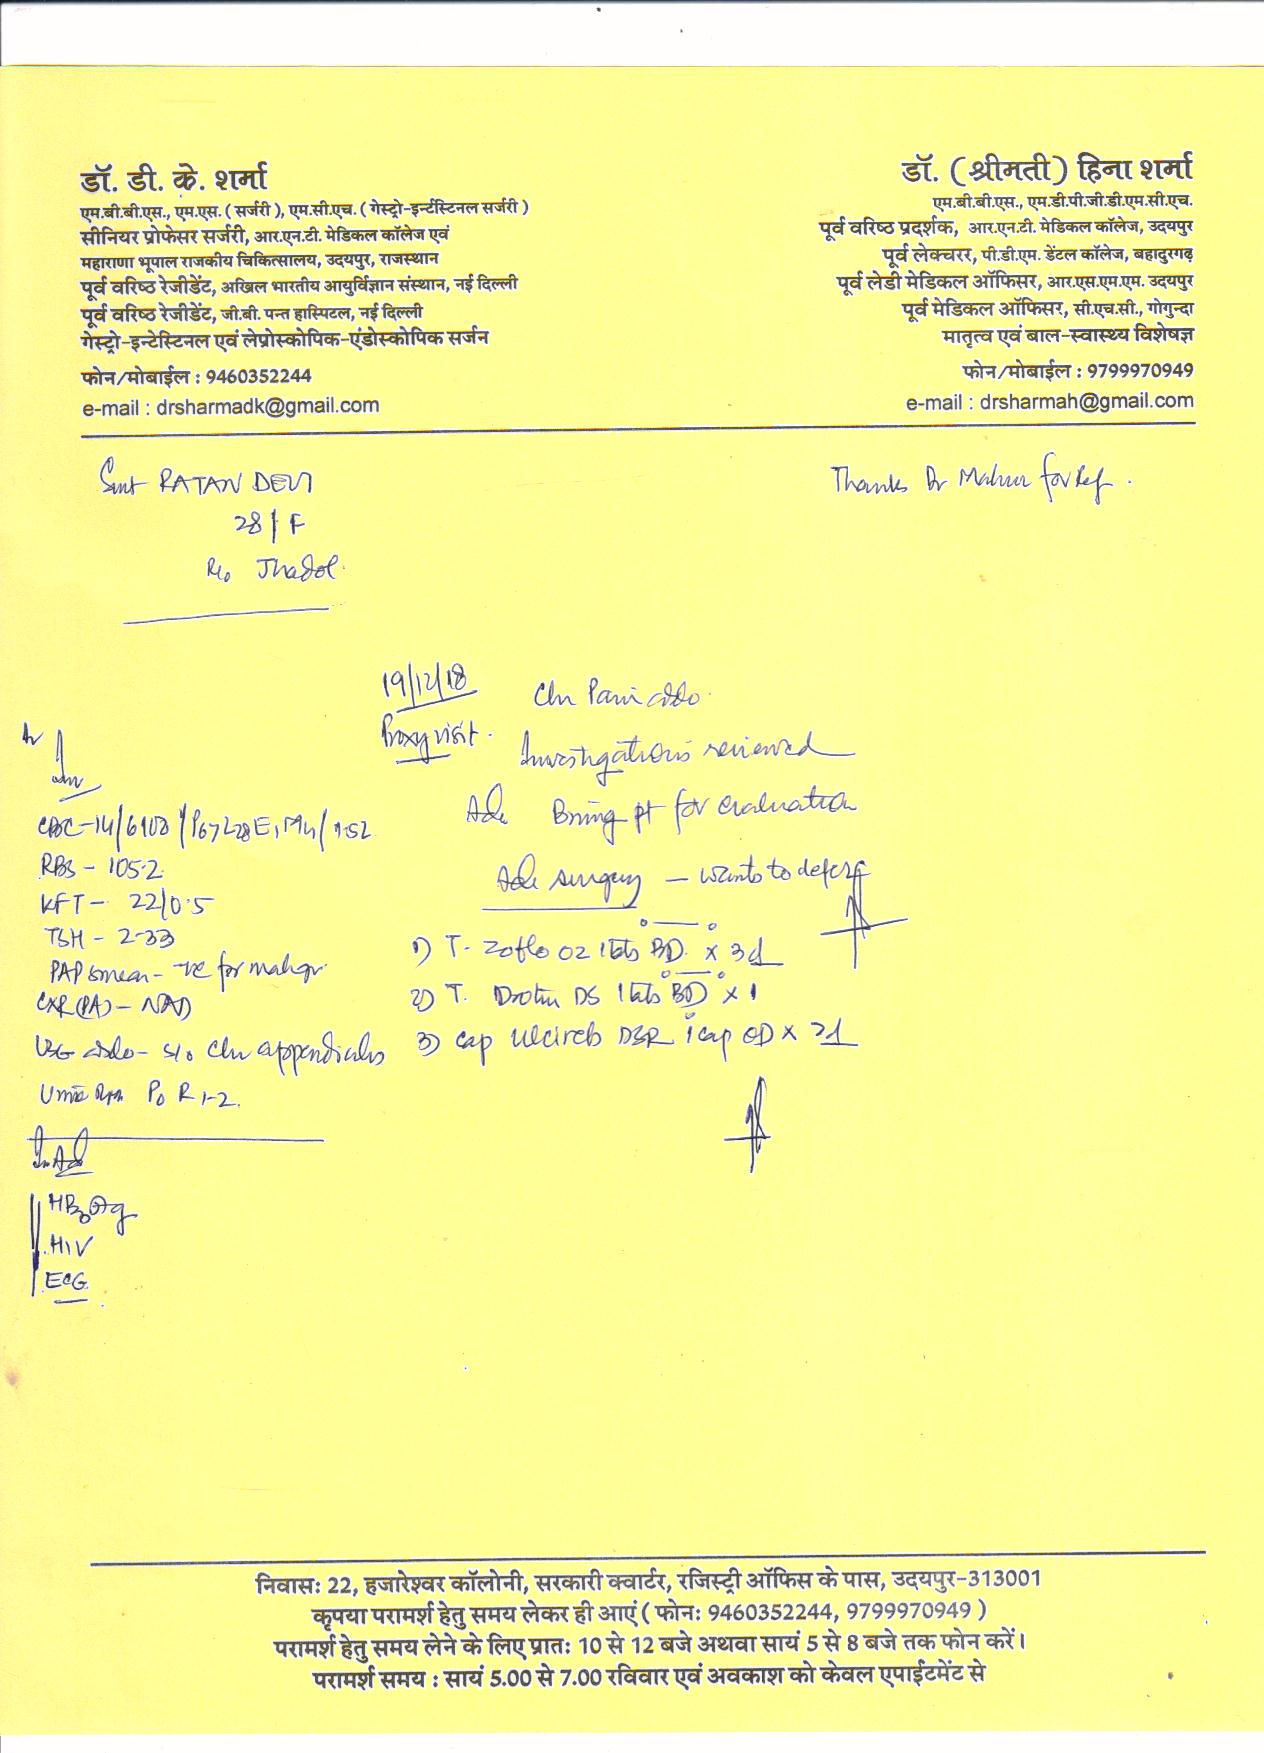 डॉ. डी. के. शर्मा
एम.बी.बी.एस., एम.एस. ( सर्जरी ), एम.सी.एच. ( गेस्ट्रो-इन्टेस्टिनल सर्जरी )
सीनियर प्रोफेसर सर्जरी, आर.एन.टी. मेडिकल कॉलेज एवं
महाराणा भूपाल राजकीय चिकित्सालय, उदयपुर, राजस्थान
पूर्व वरिष्ठ रेजीडेंट, अखिल भारतीय आयुर्विज्ञान संस्थान, नई दिल्ली
पूर्व वरिष्ठ रेजीडेंट, जी.बी. पन्त हास्पिटल, नई दिल्ली
गेस्ट्रो-इन्टेस्टिनल एवं लेप्रोस्कोपिक-एंडोस्कोपिक सर्जन
फोन/मोबाईल : 9460352244
e-mail : drsharmadk@gmail.com
डॉ. ( श्रीमती ) हिना शर्मा
एम.बी.बी.एस., एम.डी.पी.जी.डी.एम.सी.एच.
पूर्व वरिष्ठ प्रदर्शक, आर.एन.टी. मेडिकल कॉलेज, उदयपुर
पूर्व लेक्चरर, पी.डी.एम. डेंटल कॉलेज, बहादुरगढ़
पूर्व लेडी मेडिकल ऑफिसर, आर.एस.एम.एम. उदयपुर
पूर्व मेडिकल ऑफिसर, सी.एच.सी., गोगुन्दा
मातृत्व एवं बाल-स्वास्थ्य विशेषज्ञ
फोन/मोबाईल : 9799970949
e-mail : drsharmah@gmail.com
Smt RATAN DEVI
28/F
R/o Jhadol
Thanks Dr for Ref.
19/12/18
Proxy visit.
Chr Pain abdo.
Investigations reviewed
Adv Bring pt for evaluation
Adv surgery - wants to defer
1) T. Zoflo OZ 1tab BD x 3d
2) T. Drotin DS 1tab BD x
3) Cap DSR 1cap OD x
Inv
CBC-14/6100/
RBS - 105.2
KFT - 22/0.5
TSH - 2.33
PAP smear - -ve for malign.
CXR (PA) - NAD
USG abdo - s/o Chr appendicitis
Urine R 1-2.
Adv
HBsAg
HIV
ECG
निवासः 22, हजारेश्वर कॉलोनी, सरकारी क्वार्टर, रजिस्ट्री ऑफिस के पास, उदयपुर-313001
कृपया परामर्श हेतु समय लेकर ही आएं ( फोनः 9460352244, 9799970949 )
परामर्श हेतु समय लेने के लिए प्रातः 10 से 12 बजे अथवा सायं 5 से 8 बजे तक फोन करें।
परामर्श समय : सायं 5.00 से 7.00 रविवार एवं अवकाश को केवल एपाईंटमेंट से